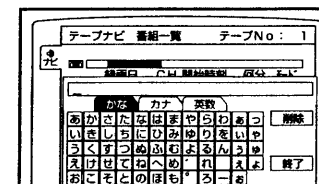 テープナビ 番組一覧 テープNo: 1
ナビ
録画日 CH 開始時刻 何分 モード
かな カナ 英数
あかさたなはまやらわぁっ 削除
いきしちにひみゆりをぃゃ
うくすつぬふむよるんぅゅ
えけせてねへめ゛れ ぇょ 終了
おこそとのほも゜ろーぉ